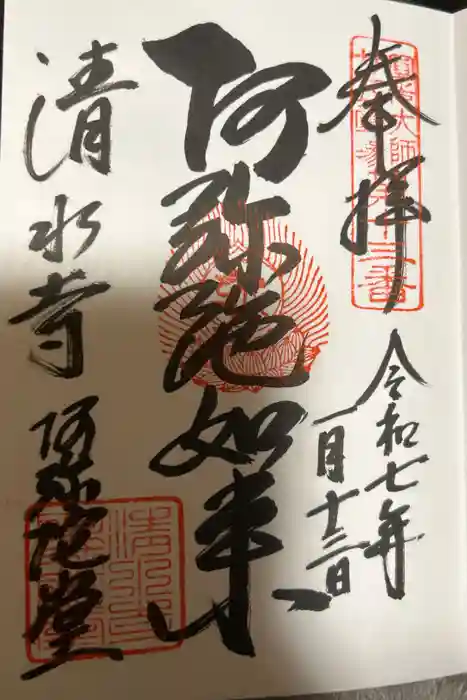 奉拝
圓光大師
第十三番
令和七年
一月十三日
阿弥陀如来
清水寺 阿弥陀堂